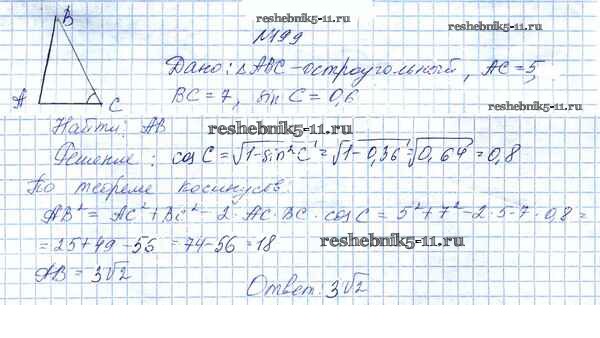 B
reshebnik5-11.ru
№199
Дано: △ABC - остроугольный, AC = 5,
A C
BC = 7, sin C = 0,6
reshebnik5-11.ru
Найти: AB
reshebnik5-11.ru
Решение: cos C = √1-sin²C = √1-0,36 = √0,64 = 0,8
По теореме косинусов:
AB² = AC² + BC² - 2·AC·BC·cos C = 5² + 7² - 2·5·7·0,8 =
= 25 + 49 - 56 = 74 - 56 = 18
reshebnik5-11.ru
AB = 3√2
Ответ: 3√2
reshebnik5-11.ru